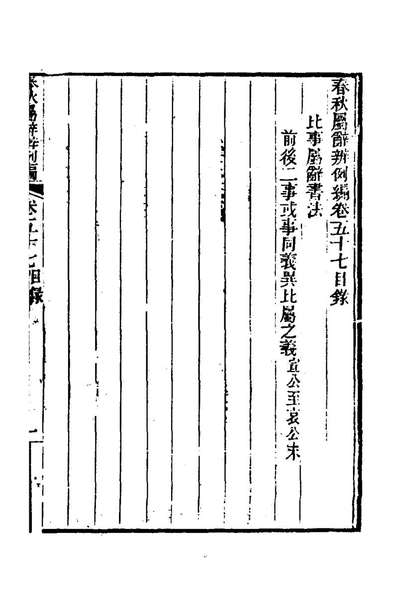 春秋屬辭辨例編卷五十七目錄
比事屬辭書法
前後二事或事同義異比屬之義宣公至哀公末
春秋屬辭辨例編 卷五十七目錄 一